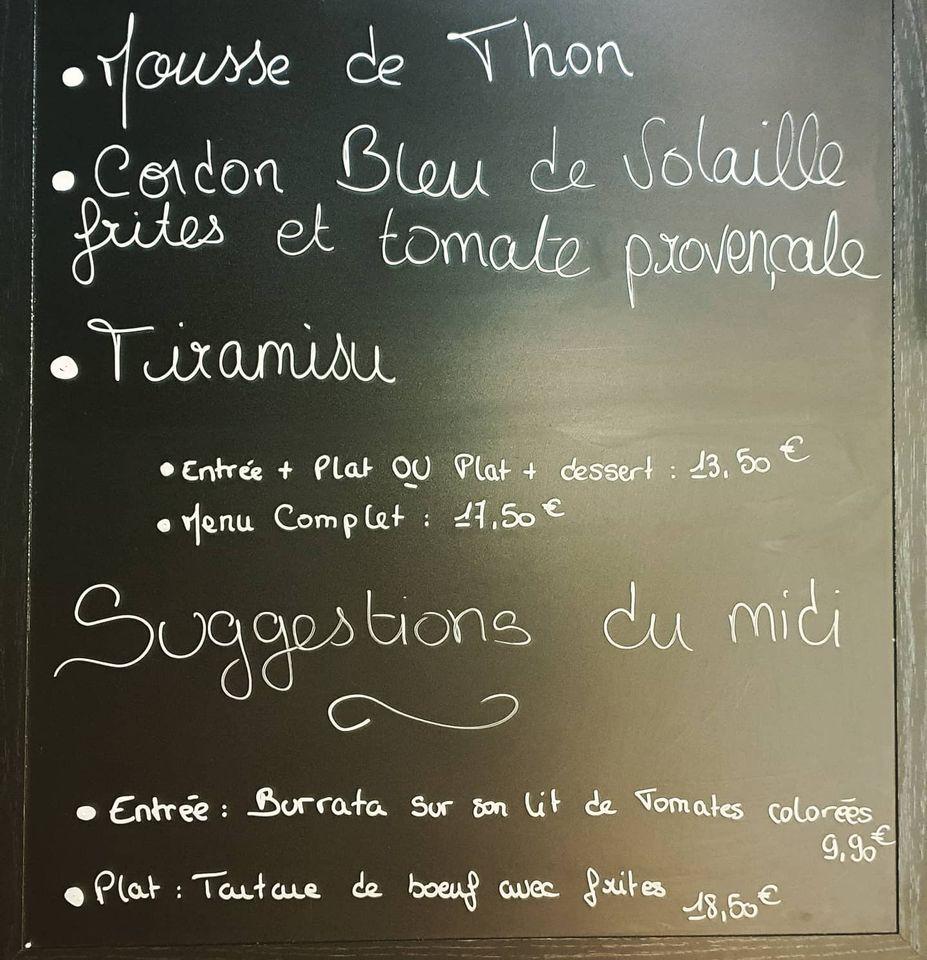 • Mousse de Thon
• Cordon Bleu de Volaille
frites et tomate provençale
• Tiramisu
• Entrée + Plat OU Plat + dessert : 13,50 €
• Menu Complet : 17,50 €
Suggestions du midi
• Entrée : Burrata sur son lit de Tomates colorées
9,90 €
• Plat : Tartare de boeuf avec frites 18,50 €